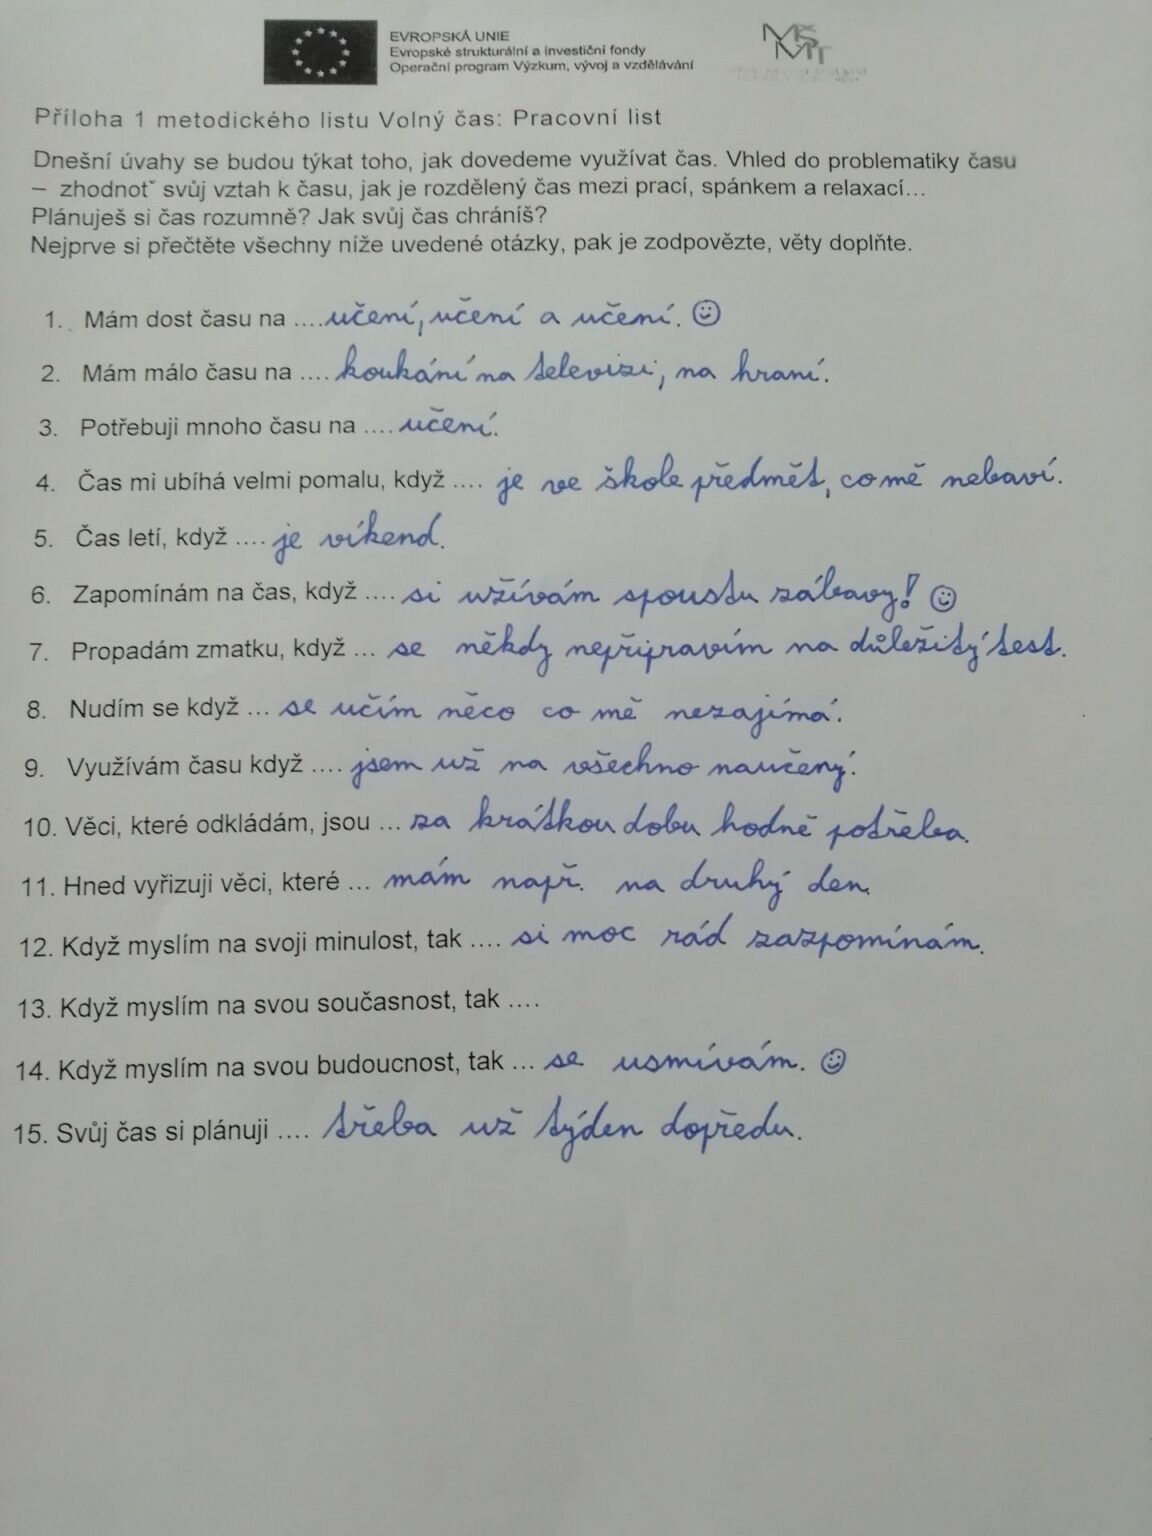 EVROPSKÁ UNIE
Evropské strukturální a investiční fondy
Operační program Výzkum, vývoj a vzdělávání
MŠMT
Příloha 1 metodického listu Volný čas: Pracovní list
Dnešní úvahy se budou týkat toho, jak dovedeme využívat čas. Vhled do problematiky času
– zhodnoť svůj vztah k času, jak je rozdělený čas mezi prací, spánkem a relaxací...
Plánuješ si čas rozumně? Jak svůj čas chráníš?
Nejprve si přečtěte všechny níže uvedené otázky, pak je zodpovězte, věty doplňte.
1. Mám dost času na ....učení, učení a učení. ☺
2. Mám málo času na .... koukání na televizi, na hraní.
3. Potřebuji mnoho času na .... učení.
4. Čas mi ubíhá velmi pomalu, když .... je ve škole předmět, co mě nebaví.
5. Čas letí, když .... je víkend.
6. Zapomínám na čas, když .... si užívám spoustu zábavy! ☺
7. Propadám zmatku, když ... se někdy nepřipravím na důležitý test.
8. Nudím se když ... se učím něco co mě nezajímá.
9. Využívám času když .... jsem už na všechno naučený.
10. Věci, které odkládám, jsou ... za krátkou dobu hodně potřeba.
11. Hned vyřizuji věci, které ... mám např. na druhý den.
12. Když myslím na svoji minulost, tak .... si moc rád zazpomínám.
13. Když myslím na svou současnost, tak ....
14. Když myslím na svou budoucnost, tak ... se usmívám. ☺
15. Svůj čas si plánuji .... třeba už týden dopředu.